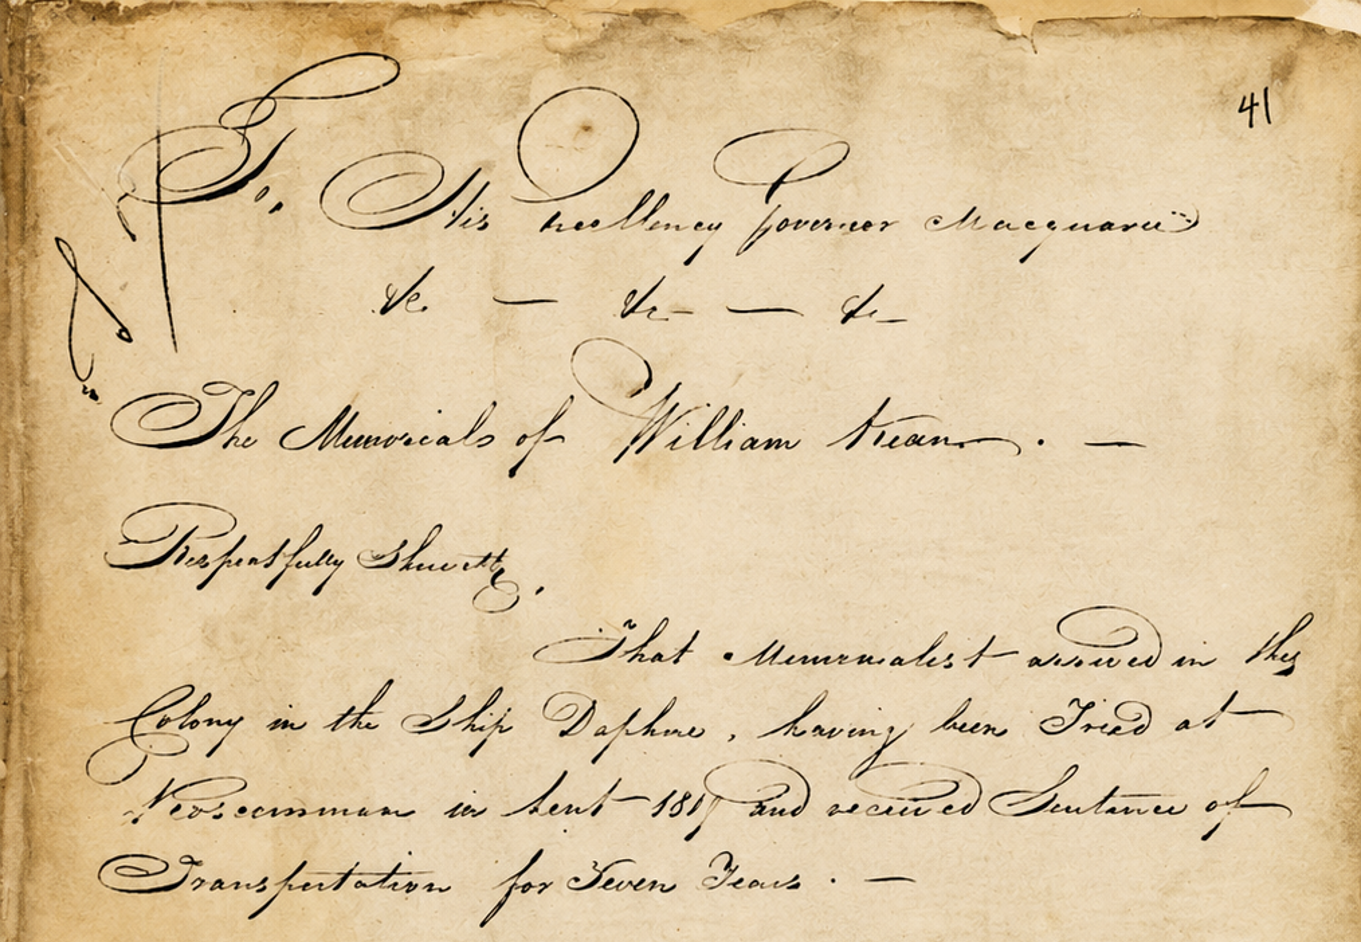 41
To, His Excellency Governor Macquarie
&c — &c — &c —
The Memorials of William Kean . —
Respectfully Sheweth,
That Memorialist arrived in this
Colony in the Ship Daphne , having been Tried at
in Kent and received Sentence of
Transportation for Seven Years . —